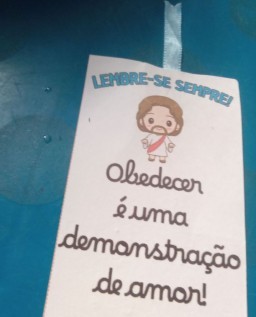 LEMBRE-SE SEMPRE!
Obedecer
é uma
demonstração
de amor!